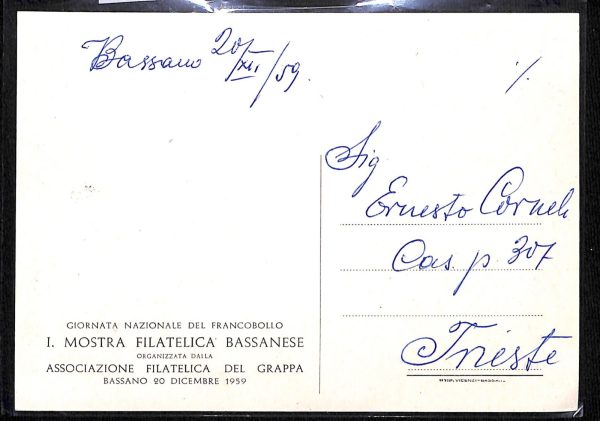 Bassano 20/XII/59.
%
Sig
Ernesto Corneli
Cas. p. 307
Trieste
GIORNATA NAZIONALE DEL FRANCOBOLLO
I. MOSTRA FILATELICA BASSANESE
ORGANIZZATA DALLA
ASSOCIAZIONE FILATELICA DEL GRAPPA
BASSANO 20 DICEMBRE 1959